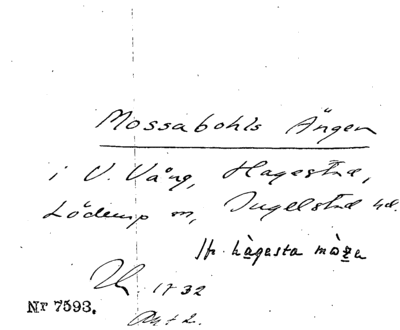 Mossabohls Ängen
i V. Vång, Hagestad,
Löderup sn, Ingelstad hd.
Jfr hàgesta mòza
1732
Nr 7593. Akt 2.